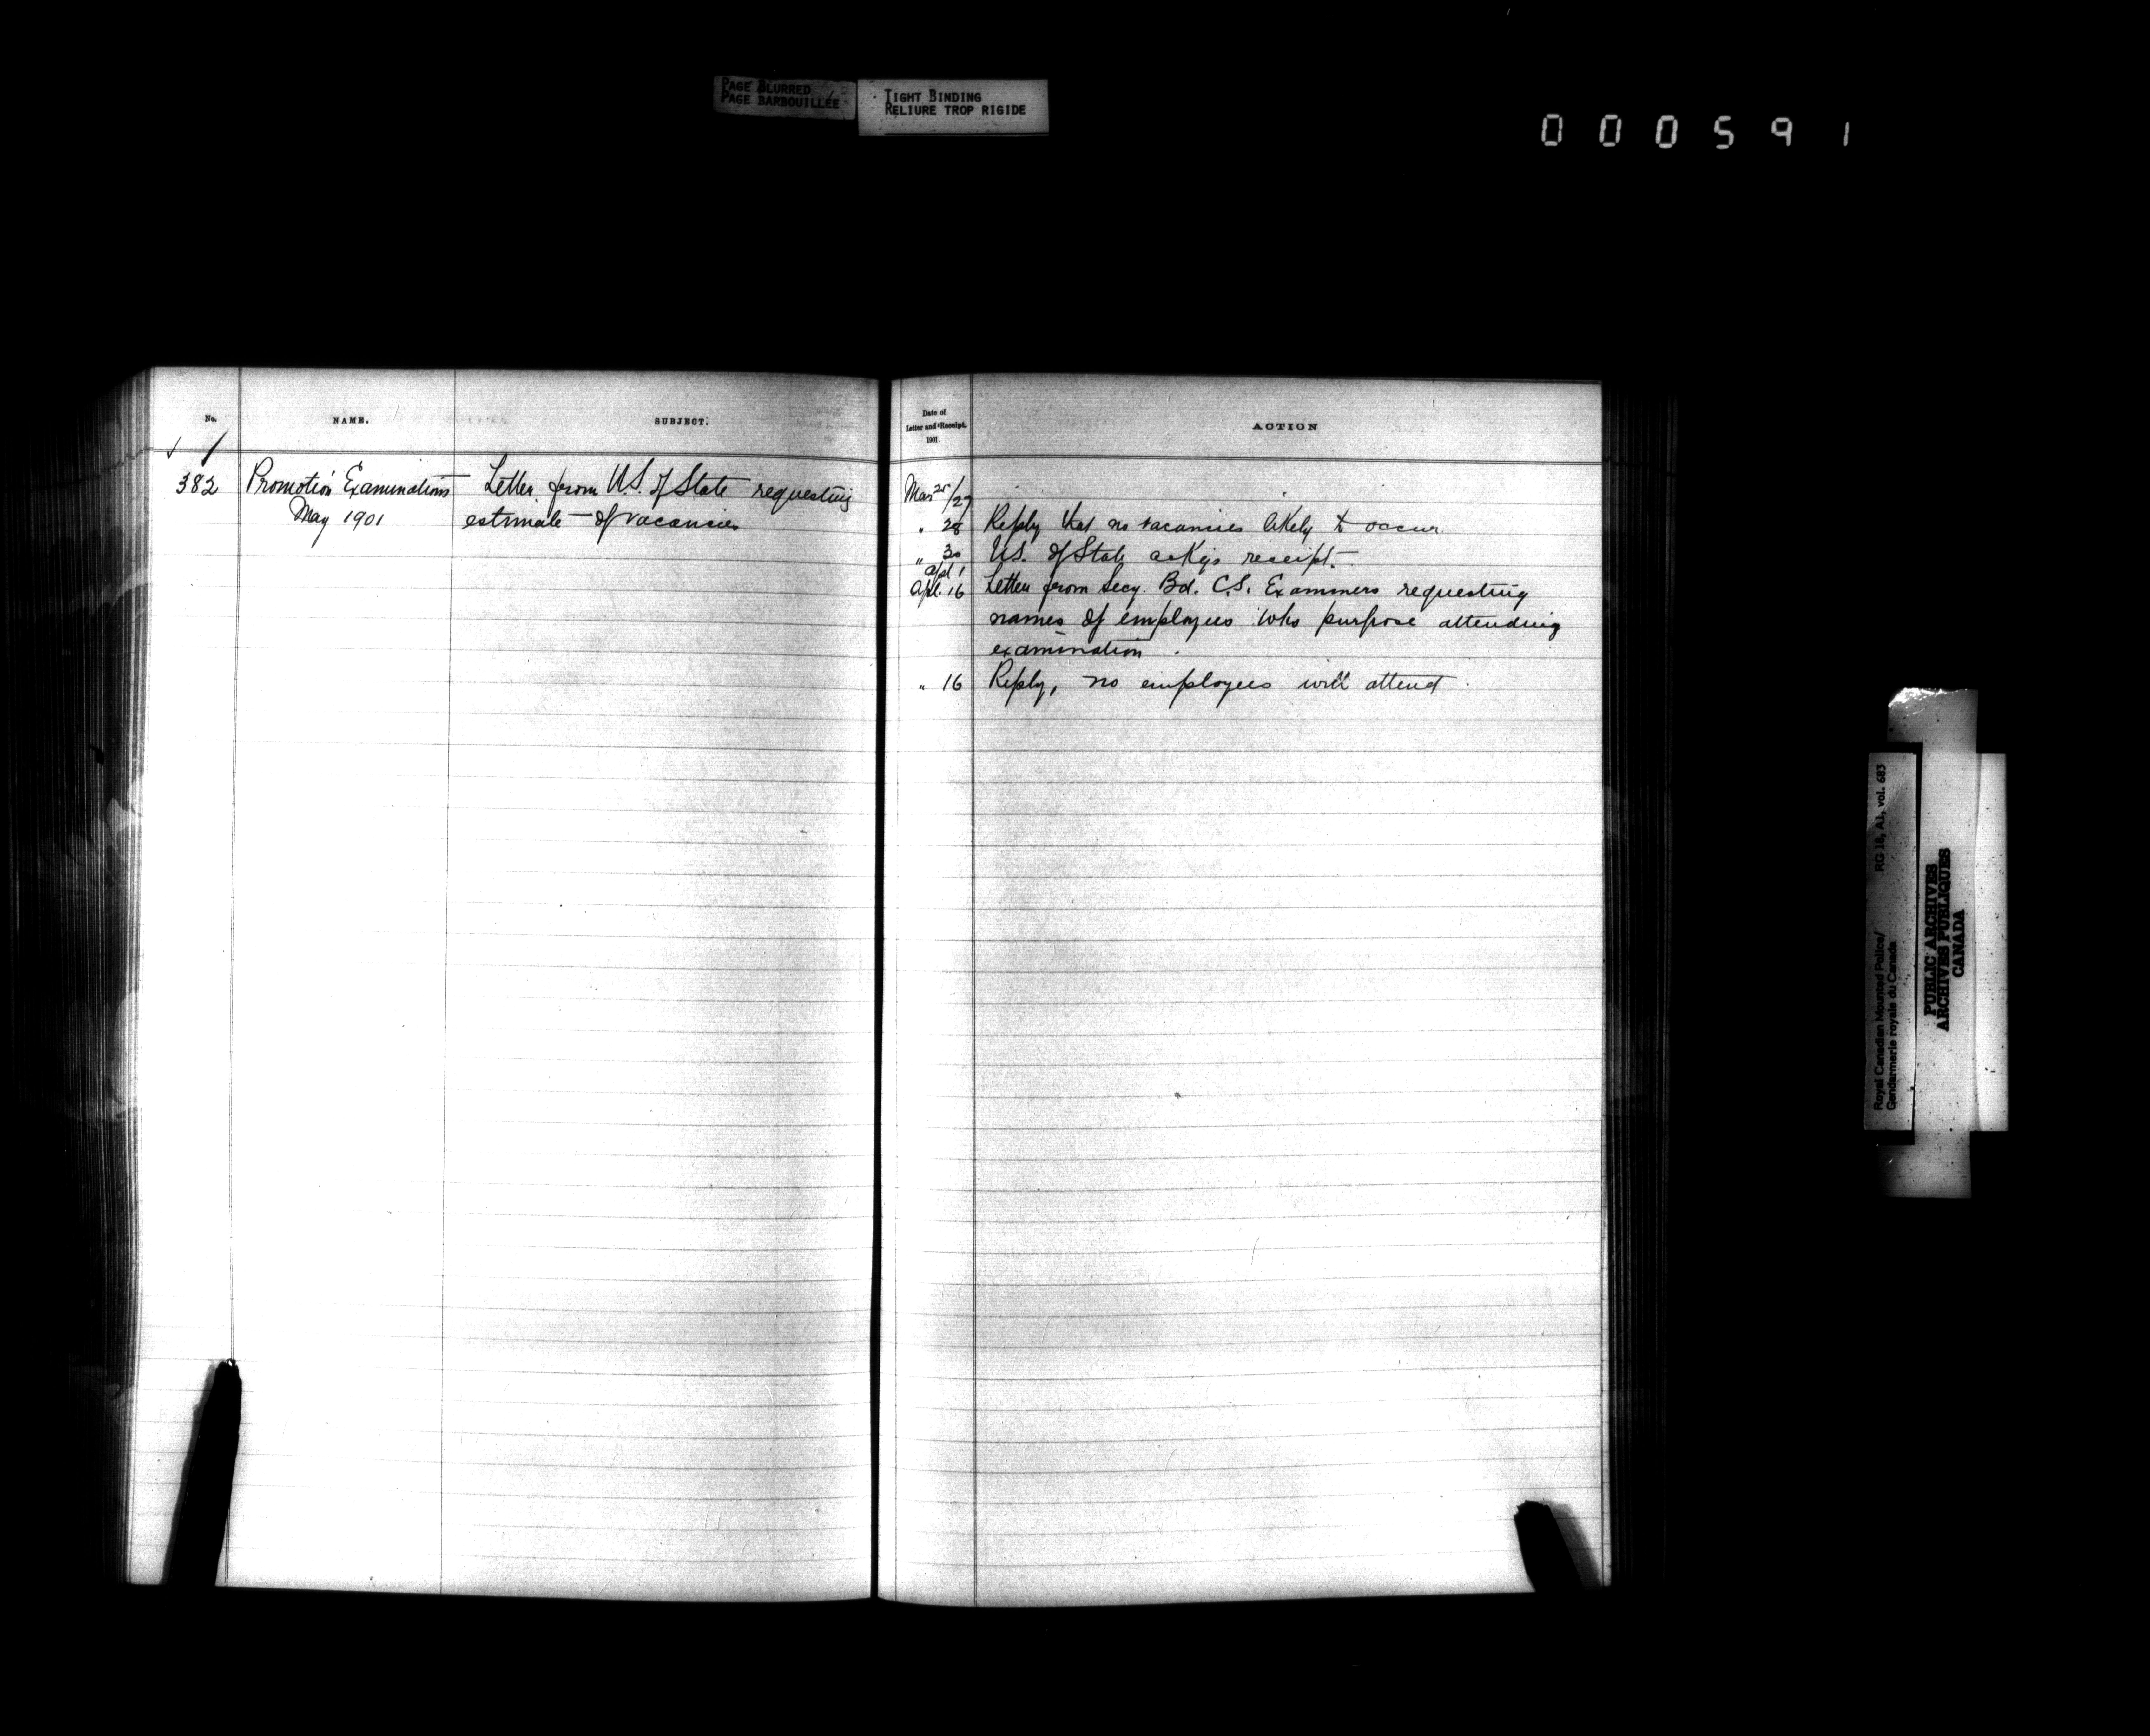 PAGE BLURRED
PAGE BARBOUILLÉE
TIGHT BINDING
RELIURE TROP RIGIDE
000591
No.
NAME.
SUBJECT.
Date of
Letter and Receipt.
1901.
ACTION
382
Promotion Examinations
May 1901
Letter from U.S. of State requesting
estimate of vacancies
Mar 25/27
" 28 Reply that no vacancies likely to occur.
" 30 U.S. of State ackgs receipt.
Apl 1
Apl. 16 Letter from Secy. Bd. C.S. Examiners requesting
names of employees who purpose attending
examination.
" 16 Reply, no employees will attend.
Royal Canadian Mounted Police/
Gendarmerie royale du Canada
RG 18, A1, vol. 683
PUBLIC ARCHIVES
ARCHIVES PUBLIQUES
CANADA